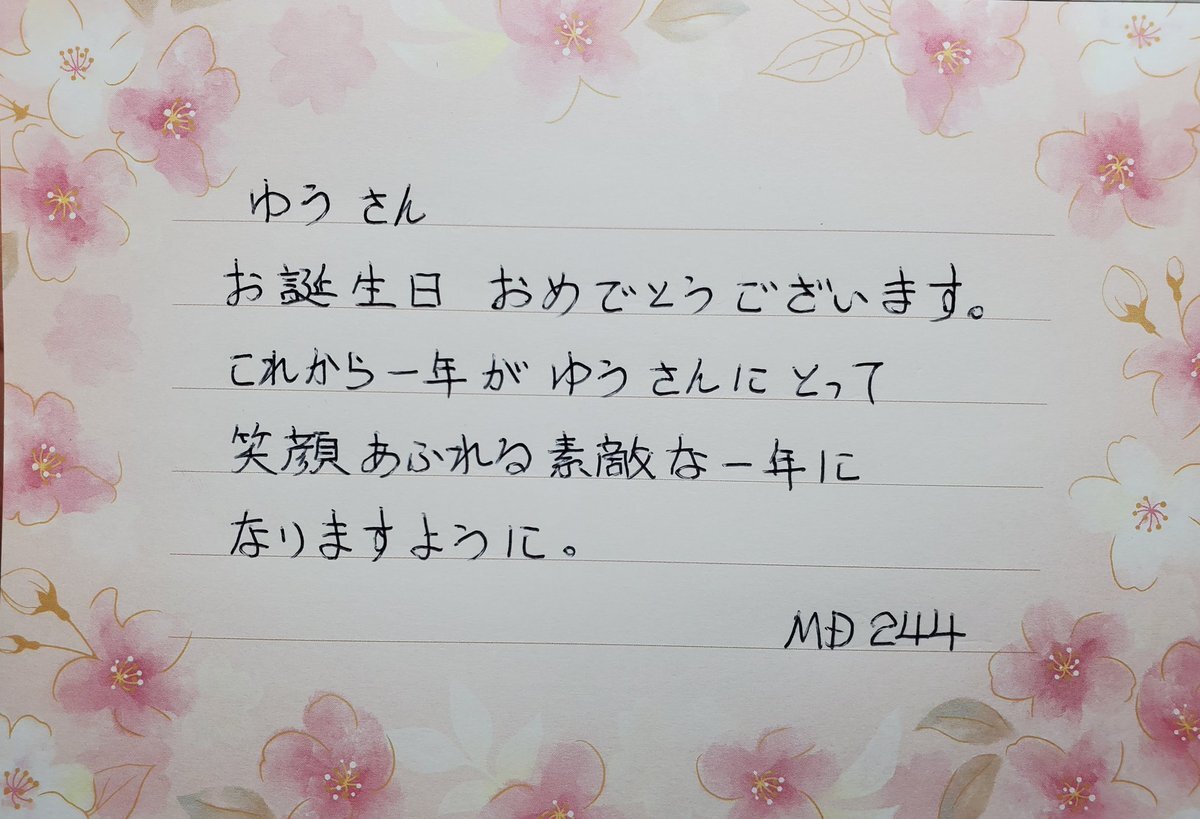 ゆうさん
お誕生日 おめでとうございます。
これから一年が ゆうさんにとって
笑顔あふれる素敵な一年に
なりますように。
MD 244